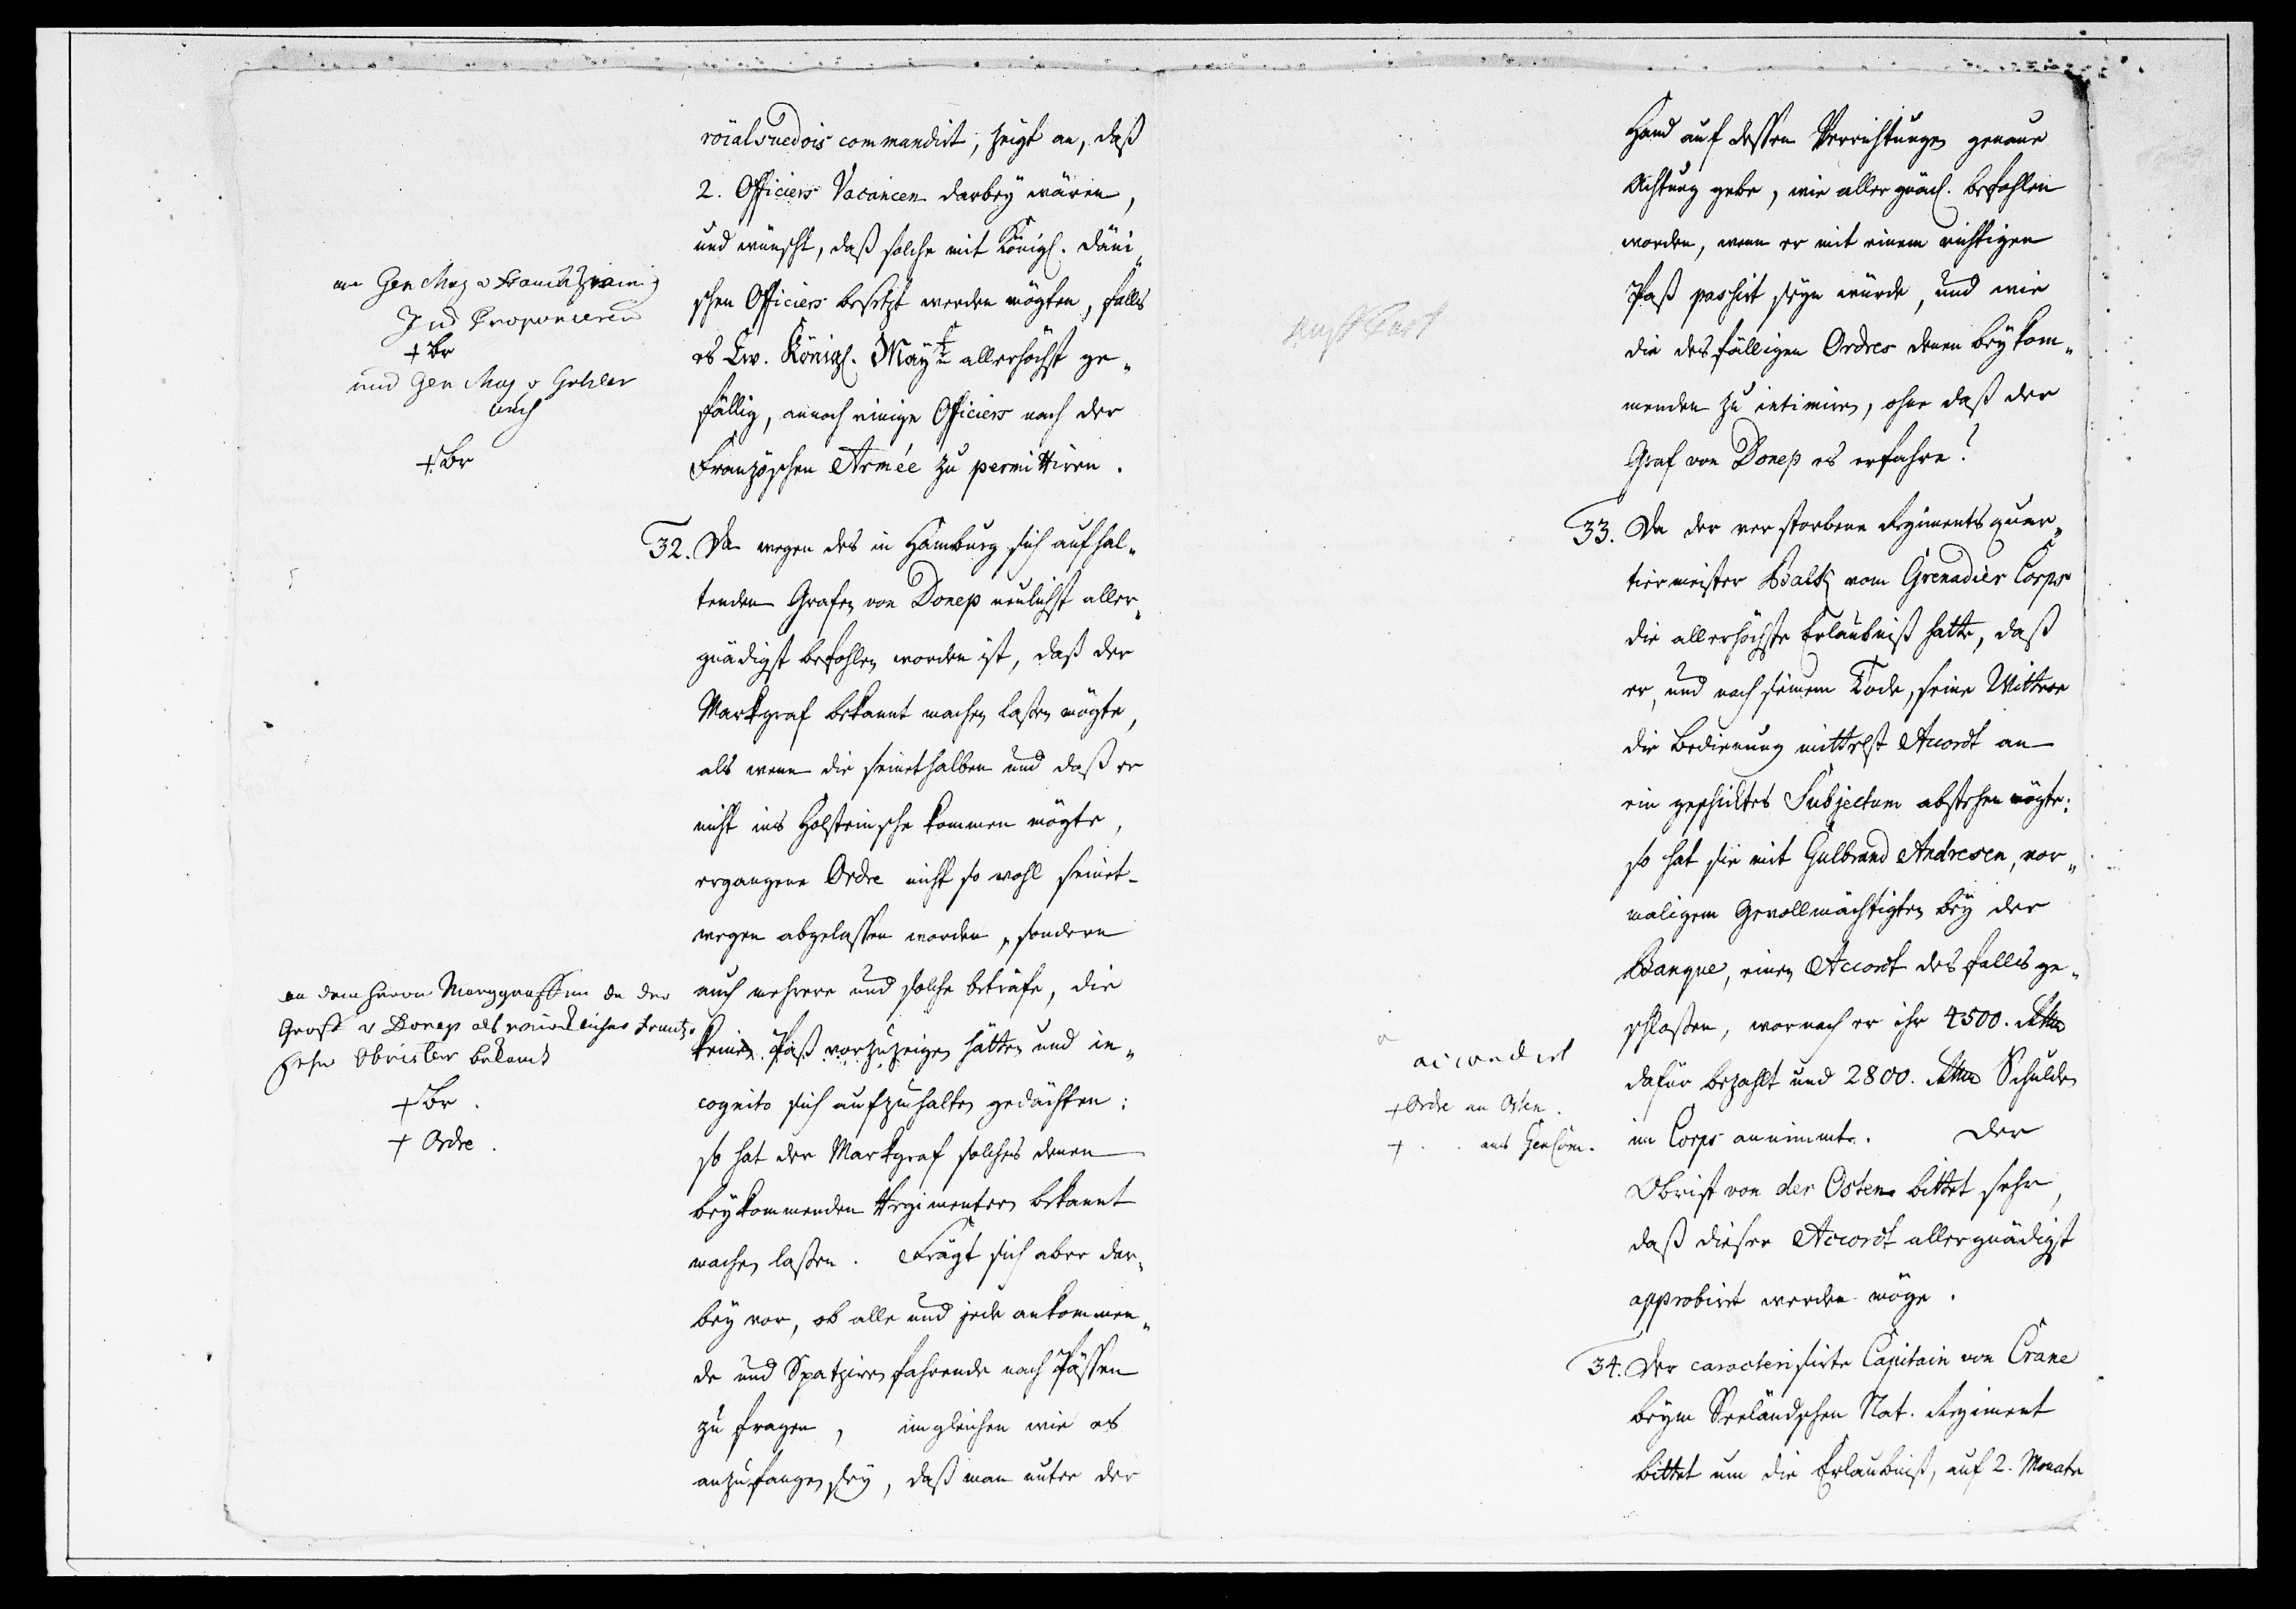 roialsuedois commandirt, zeigt an, daß
2. Officiers Vacancen darbey wären,
und wünscht, daß solche mit Königl. Däni„
schen Officiers besetzt werden mögten, falls
es Ew. Königl. Mayt. allerhöchst ge„
fällig, annoch einige Officiers nach der
Französchen Armée zu permittiren.
an Gen Maj v
Proponieren
+ Br
und Gen Maj v Gähler
auch
+ Br
32. Da wegen des in Hamburg sich aufhal„
tenden Grafen von Donep neulichst aller„
gnädigst befohlen worden ist, daß der
Markgraf bekannt machen laßen mögte,
als wenn die seinethalben und daß er
nicht ins Holsteinsche kommen mögte,
ergangene Ordre nicht so wohl seinet-
wegen abgelassen worden, sondern
auch mehrere und solche beträfe, die
keinen Paß vorzuzeigen hätten und in„
cognito sich aufzuhalten gedächten:
so hat der Markgraf solches denen
beykommenden Regimentern bekannt
machen laßen. Frägt sich aber dar„
bey vor, ob alle und jede ankommen„
de und Spatzieren fahrende nach Pässen
zu fragen, imgleichen wie es
anzufangen sey, daß man unter der
an dem Herrn Marggraffen da der
Graff v Donep als würcklicher Frantzö
scher Obrister bekant
+ Br.
+ Ordre.
Hand auf dessen Verrichtungen genaue
Achtung gebe, wie allergnäd. befohlen
worden, wenn er mit einem richtigen
Paß passirt seyn würde, und wie
die desfälligen Ordres denen beykom„
menden zu intimiren, ohne daß der
Graf von Donep es erfahre?
33. Da der verstorbene Regimentsquar„
tiermeister Balk vom Grenadier Corps
die allerhöchste Erlaubniß hatte, daß
er, und nach seinem Tode, seine Wittwe
die Bedienung mittelst Accordt an
ein geschicktes Subjectum abstehen mögte:
so hat sie mit Gulbrand Andresen, vor„
maligem Gevollmächtigten bey der
Banque, einen Accordt desfalls ge„
schlossen, wornach er ihr 4500. Rthlr
dafür bezahlt und 2800. Rthlr Schulden
im Corps annimmt. Der
Obrist von der Osten bittet sehr,
daß dieser Accordt allergnädigst
approbirt werden möge.
accordirt
+ Ordre an Osten.
+ . . ans GenCom.
34. Der caracterisirte Capitain von Crane
beym Seeländschen Nat. Regiment
bittet um die Erlaubniß, auf 2. Monate